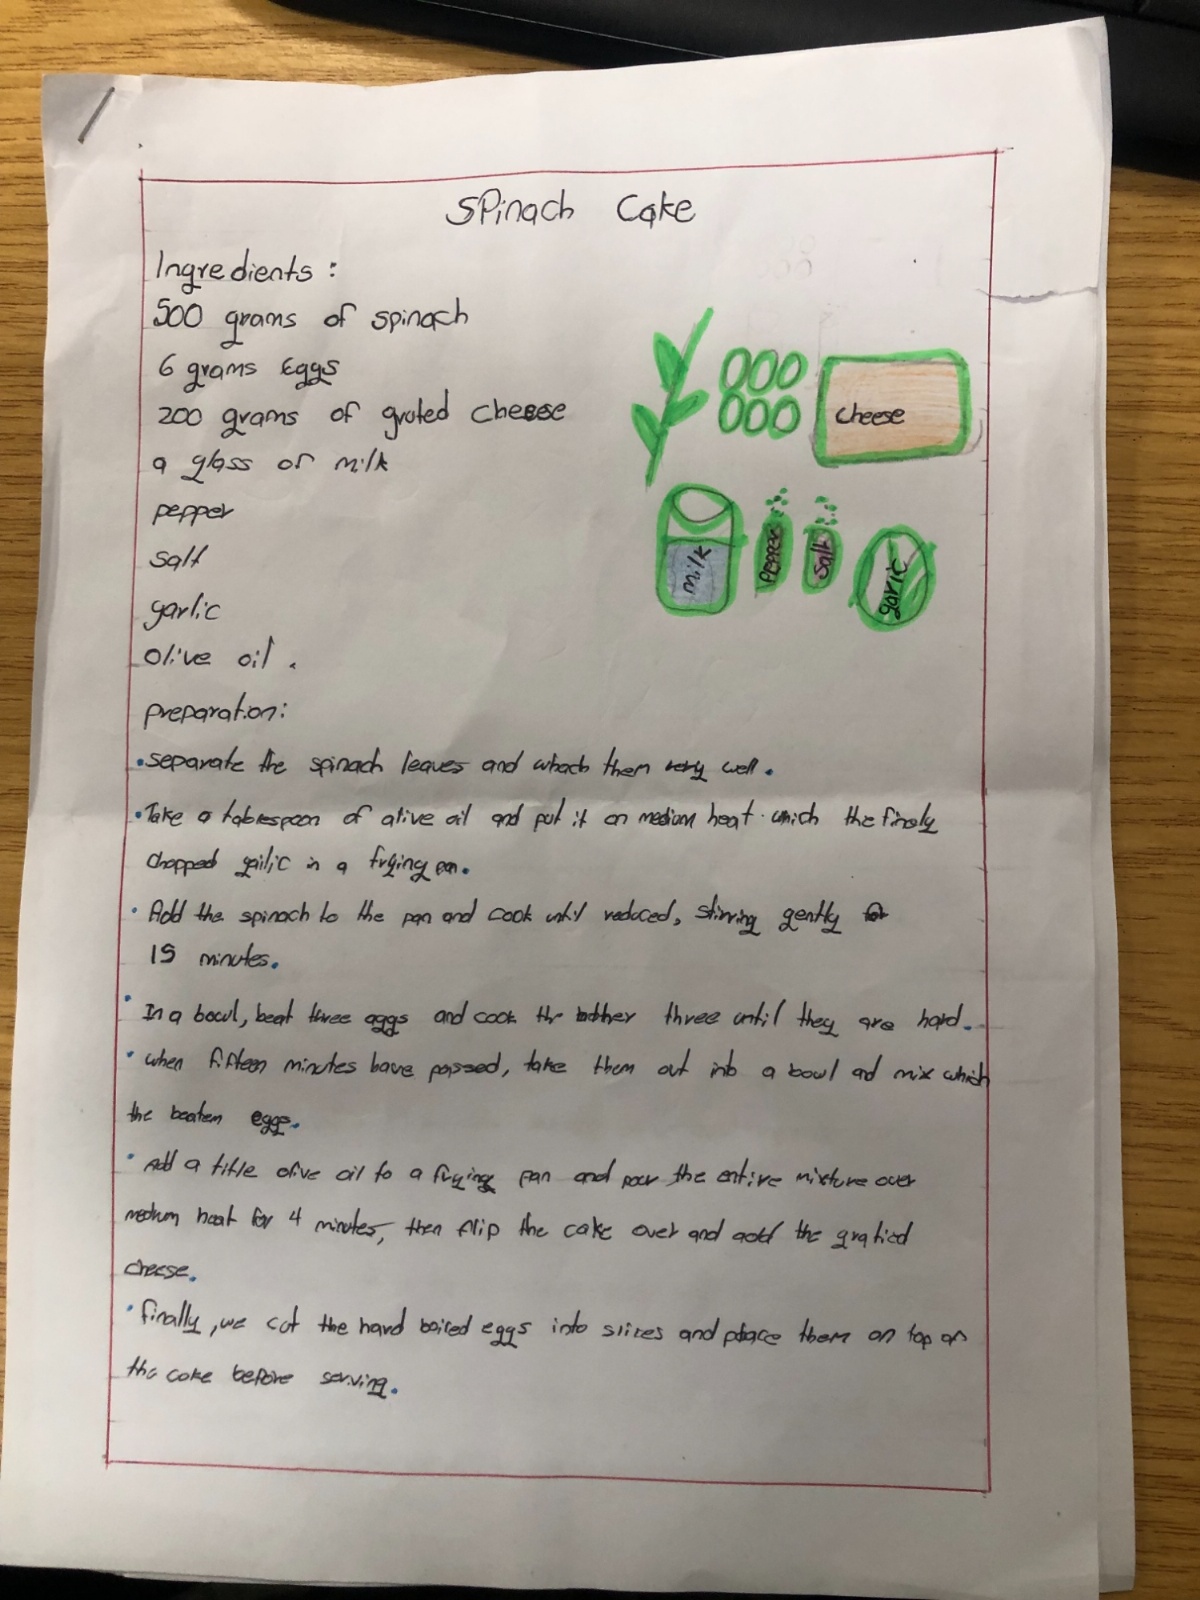 Spinach Cake
Ingredients :
500 grams of spinach
6 grams Eggs
200 grams of grated cheese
a glass of milk
pepper
salt
garlic
olive oil .
preparation:
cheese
milk
Pepper
Salt
garlic
•separate the spinach leaves and whach them very well.
•Take a tablespoon of olive oil and put it on medium heat which the finely
chopped garlic in a frying pan.
• Add the spinach to the pan and cook until reduced, stirring gently for
15 minutes.
• In a bowl, beat three eggs and cook the other three until they are hard.
• when fifteen minutes have passed, take them out into a bowl and mix which
the beaten eggs.
• Add a title olive oil to a frying pan and pour the entire mixture over
medium heat for 4 minutes, then flip the cake over and add the gratied
cheese.
• finally, we cut the hard boired eggs into slices and place them on top of
the cake before serving.